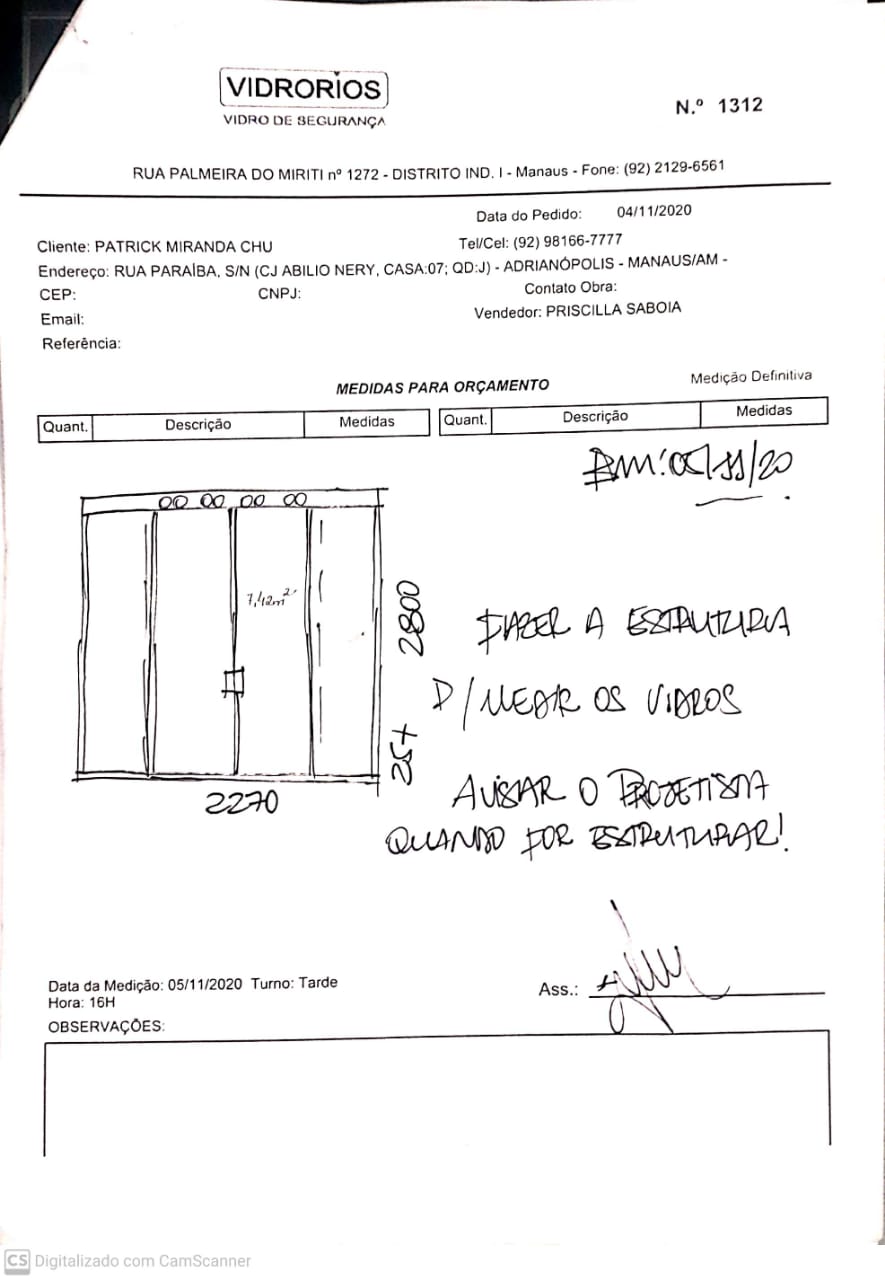 VIDRORIOS
VIDRO DE SEGURANÇA
N.º 1312
RUA PALMEIRA DO MIRITI nº 1272 - DISTRITO IND. I - Manaus - Fone: (92) 2129-6561
Data do Pedido: 04/11/2020
Cliente: PATRICK MIRANDA CHU
Tel/Cel: (92) 98166-7777
Endereço: RUA PARAÍBA, S/N (CJ ABILIO NERY, CASA:07; QD:J) - ADRIANÓPOLIS - MANAUS/AM -
CEP: CNPJ: Contato Obra:
Email:
Vendedor: PRISCILLA SABOIA
Referência:
MEDIDAS PARA ORÇAMENTO
Medição Definitiva
Quant. Descrição Medidas Quant. Descrição Medidas
/11/20
7,42m²
2800
257
2270
FAZER A ESTRUTURA
P/ MEDIR OS VIDROS
AVISAR O PROJETISTA
QUANDO FOR ESTRUTURAR!
Data da Medição: 05/11/2020 Turno: Tarde
Hora: 16H
Ass.:
OBSERVAÇÕES:
CS Digitalizado com CamScanner